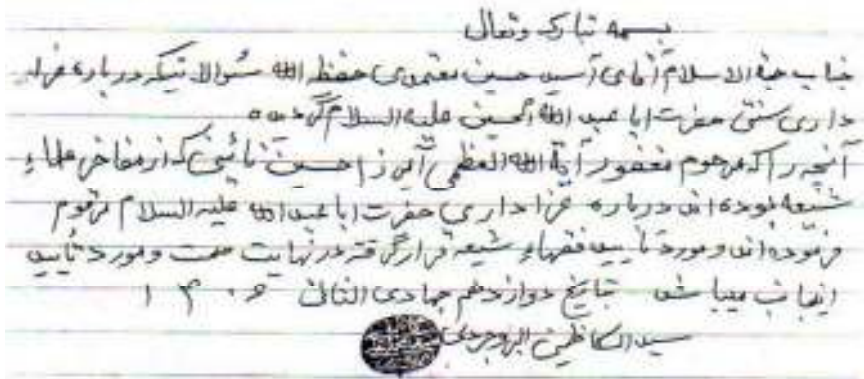 بسمه تبارک وتعالی
جناب حجة الاسلام آقای آسید حسین معتمدی حفظه الله سئوالاتیکه درباره عزا
داری سنتی حضرت ابا عبد الله الحسین علیه السلام کرده
آنچه را که مرحوم مغفور آیة الله العظمی آمیرزا حسین نائینی که از مفاخر علماء
شیعه بوده اند درباره عزاداری حضرت ابا عبدالله علیه السلام مرقوم
فرموده اند ومورد تأیید فقهاء شیعه قرار گرفته درنهایت صحت ومورد تأیید
اینجانب میباشد بتاریخ دوازدهم جمادی الثانی ۱۴۰۶
سید الکاظمی البروجردی